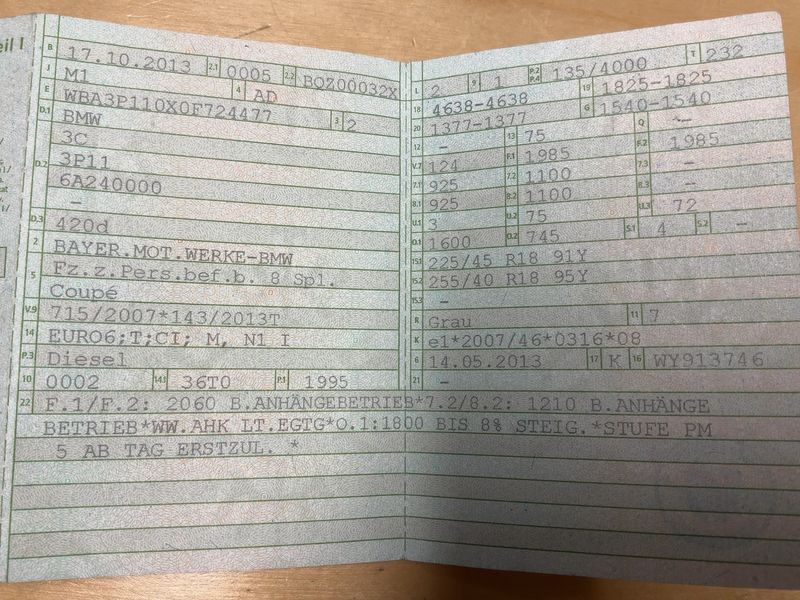 eil I
B 17.10.2013 2.1 0005 2.2 BQZ00032X
J M1 4 AD
E WBA3P110X0F724477
D.1 BMW 3 2
3C
D.2 3P11
6A240000
-
D.3 420d
2 BAYER.MOT.WERKE-BMW
5 Fz.z.Pers.bef.b. 8 Spl.
Coupé
V.9 715/2007*143/2013T
14 EURO6;T;CI; M, N1 I
P.3 Diesel
10 0002 14.1 36T0 P.1 1995
L 2 9 1 P.2 P.4 135/4000 T 232
18 4638-4638 19 1825-1825
20 1377-1377 G 1540-1540
12 - 13 75 Q -
V.7 124 F.1 1985 F.2 1985
7.1 925 7.2 1100 7.3 -
8.1 925 8.2 1100 8.3 -
U.1 3 U.2 75 U.3 72
O.1 1600 O.2 745 S.1 4 S.2 -
15.1 225/45 R18 91Y
15.2 255/40 R18 95Y
15.3 -
R Grau 11 7
K e1*2007/46*0316*08
6 14.05.2013 17 K 16 WY913746
21 -
22 F.1/F.2: 2060 B.ANHÄNGEBETRIEB*7.2/8.2: 1210 B.ANHÄNGE
BETRIEB*WW.AHK LT.EGTG*O.1:1800 BIS 8% STEIG.*STUFE PM
5 AB TAG ERSTZUL. *